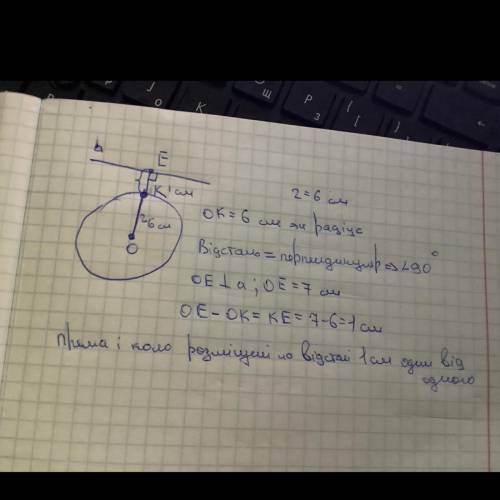 a
E
K 1 см
r 6 см
O
r = 6 см
OK = 6 см як радіус
Відстань = перпендикуляр => ∠90°
OE ⊥ a ; OE = 7 см
OE - OK = KE = 7 - 6 = 1 см
Пряма і коло розміщені на відстані 1 см один від
одного